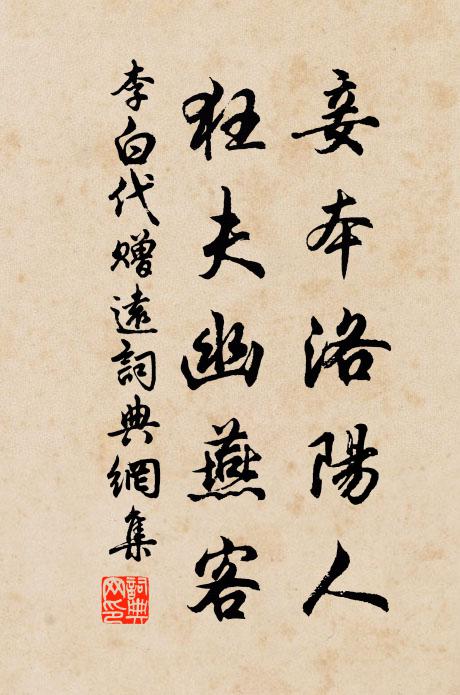 妾本洛陽人
狂夫幽燕客
李白代贈遠詞典網集
詞典網印